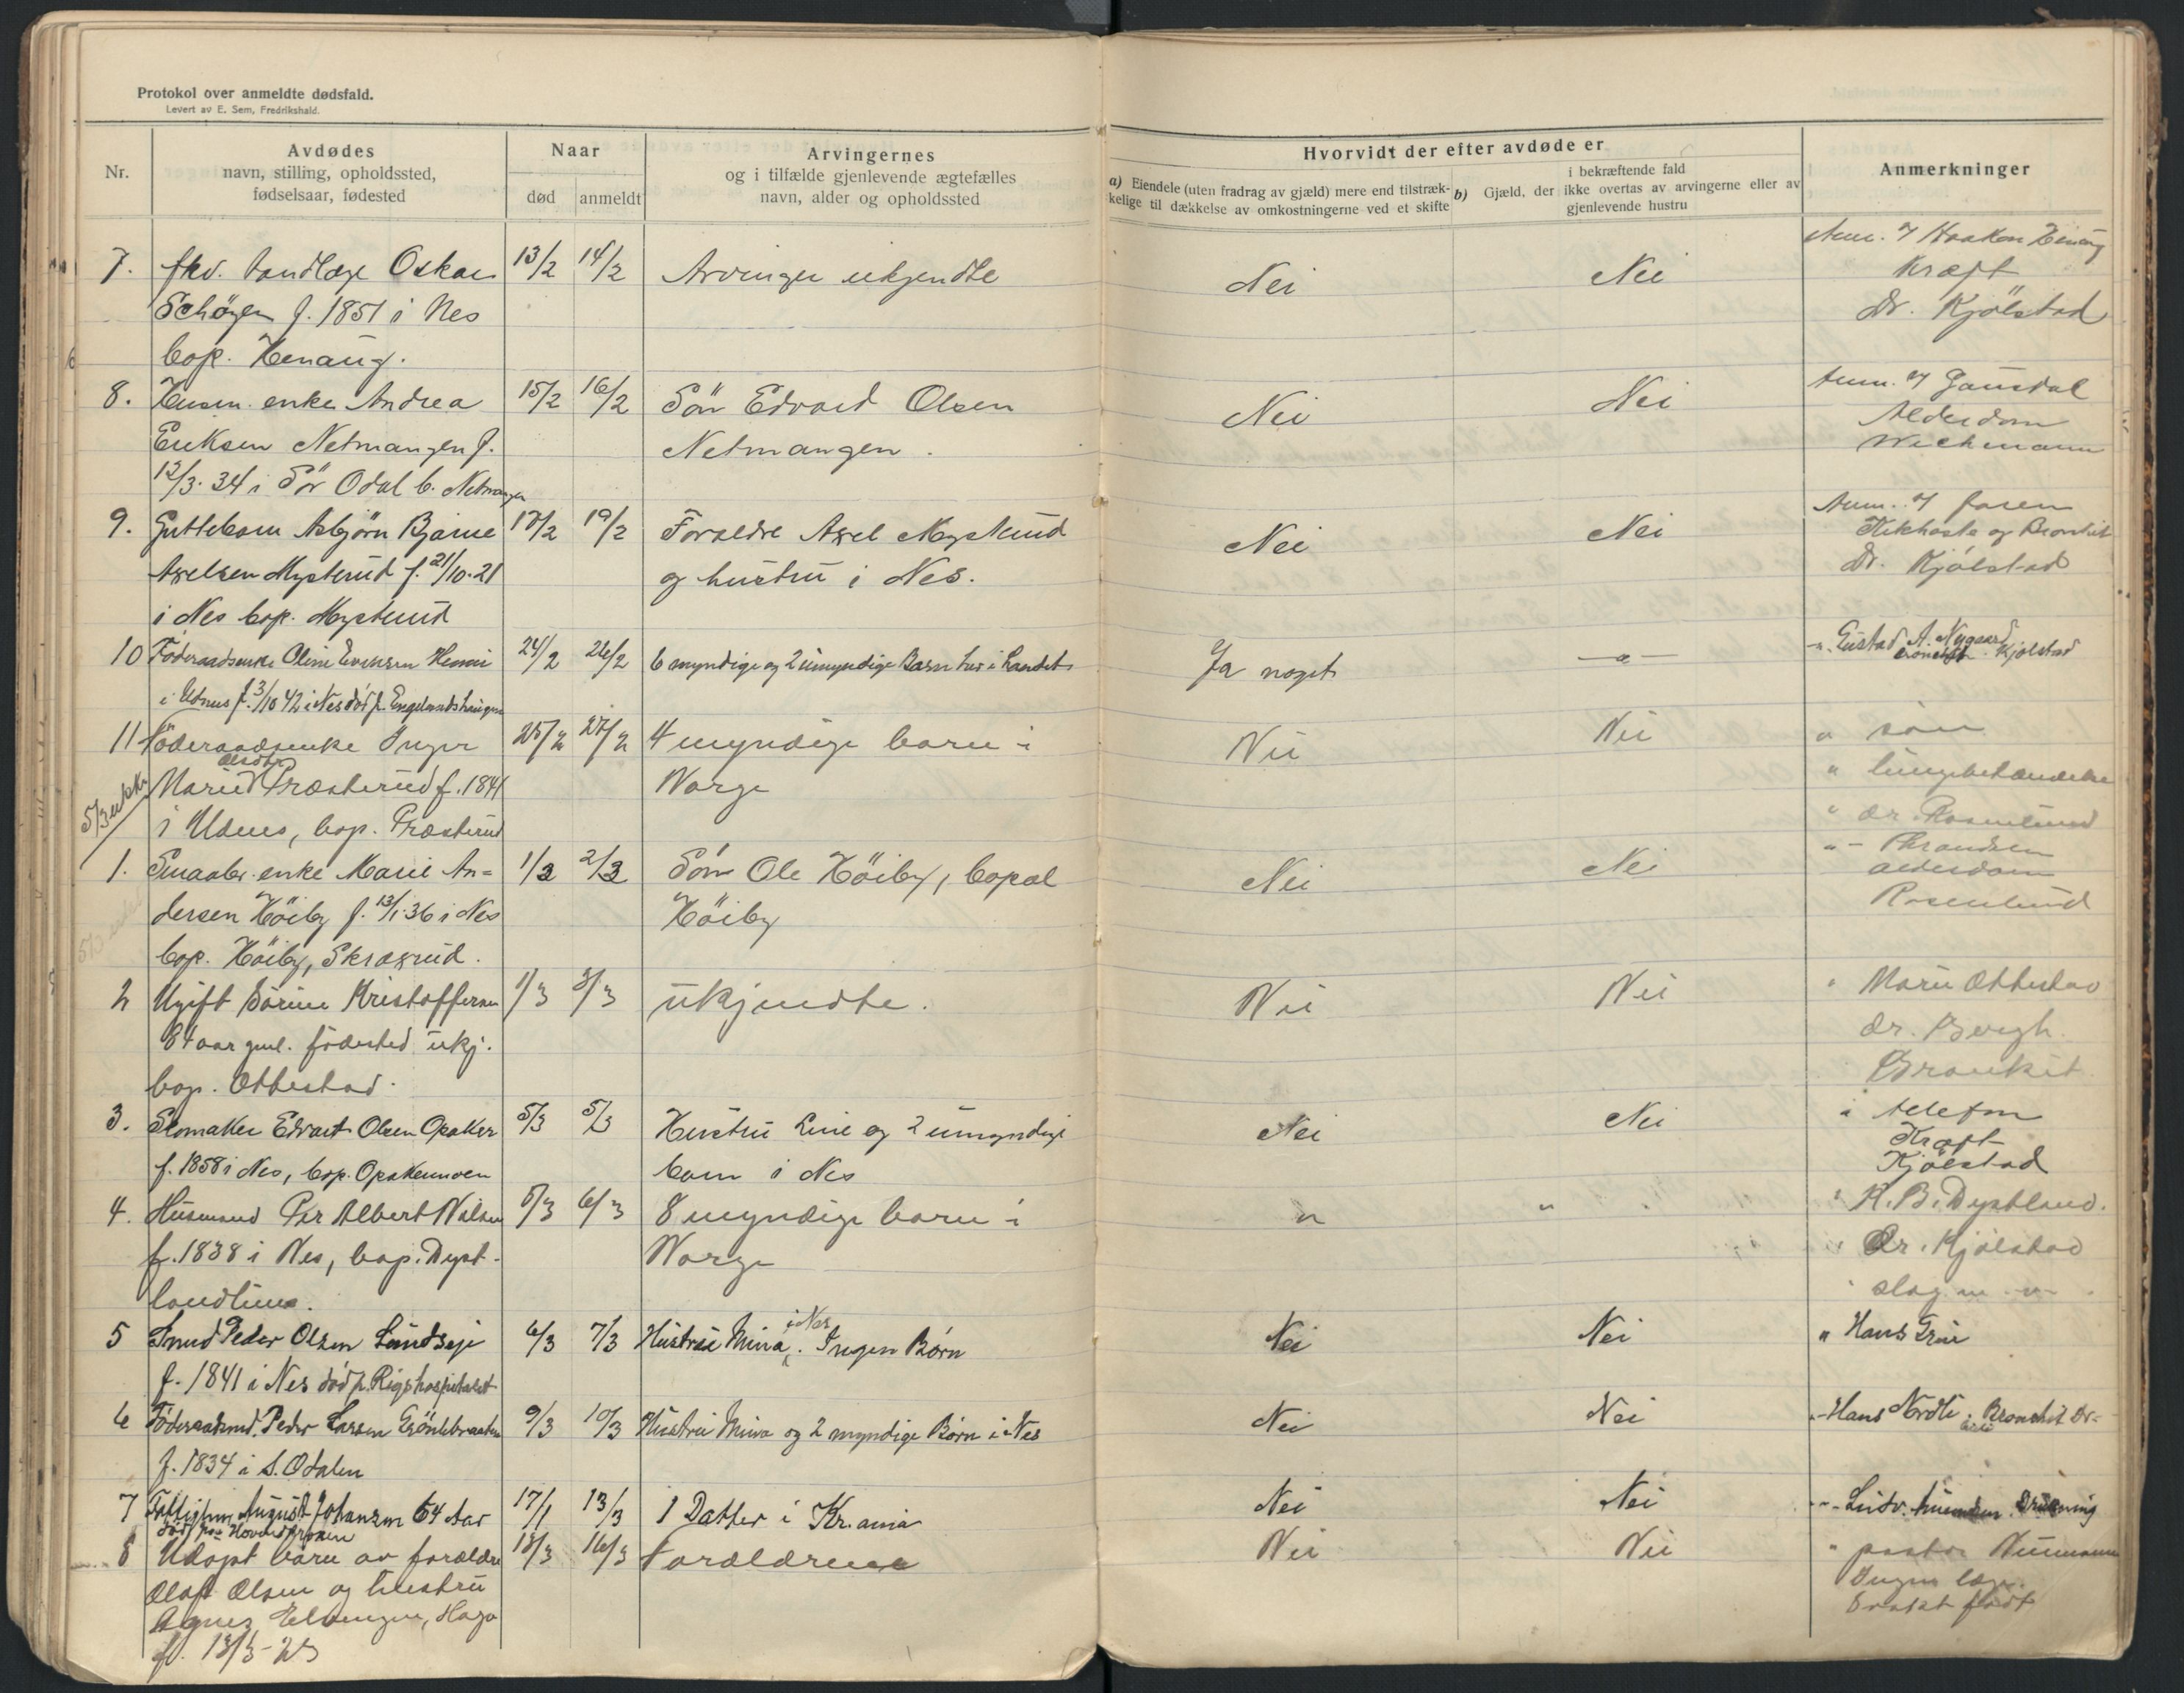 Protokol over anmeldte dødsfald.
Levert av E. Sem, Fredrikshald.
Nr.
Avdødes
navn, stilling, opholdssted,
fødselsaar, fødested
Naar
død
anmeldt
Arvingernes
og i tilfælde gjenlevende ægtefælles
navn, alder og opholdssted
Hvorvidt der efter avdøde er
a) Eiendele (uten fradrag av gjæld) mere end tilstræk-
kelige til dækkelse av omkostningerne ved et skifte
b) Gjæld, der
i bekræftende fald
ikke overtas av arvingerne eller av
gjenlevende hustru
Anmerkninger
7. fhv. tandlæge Oskar 13/2 14/2 Arvinger ukjendte Nei Nei Anm. v/ Haakon Henaug
Schøyen f. 1851 i Nes Kræft
bop. Henaug. Dr. Kjölstad
8. Husm. enke Andrea 15/2 16/2 Sön Edvard Olsen Nei Nei Anm. v/ Gausdal
Eriksen Netmangen f. Netmangen. Alderdom
12/3. 34 i Sör Odal b. Netmangen Wichmann
9. Guttebarn Asbjörn Bjarne 17/2 19/2 Foraldre Axel Mysterud Nei Nei Anm. v/ faren
Axelsen Mysterud f. 21/10. 21 og hustru i Nes. Kikhoste og Bronkit
i Nes bop. Mysterud Dr. Kjölstad
10 Föderaadsenke Oline Evensen Hemni 24/2 26/2 6 myndige og 2 umyndige Barn her i Landet Ja noget —"— —"— Gustad A. Nygaard
i Udnes f. 3/10 42 i Nes död p. Engelundshaugen Kjölstad
11 Föderaadsenke Inger 25/2 27/2 4 myndige barn i Nei Nei " sön
Olsdtr
5/3 Marie Præsterud f. 1841 Norge " lungebetændelse
i Udnes, bop. Præsterud " dr. Rosenlund
1. Smaabr. enke Marie An= 1/3 2/3 Sön Ole Höiby, bopæl Nei Nei "—
dersen Höiby f. 13/1 36 i Nes Höiby alderdom
bop. Höiby, Skraxrud. Rosenlund
2 Ugift Sörine Kristoffersen 1/3 3/3 ukjendte. Nei Nei " Marie Ottestad
84 aar gml. födested ukj. dr. Bergh.
bop. Ottestad. Bronkit
3. Skomaker Edvart Olsen Opaker 5/3 5/3 Hustru Line og 2 umyndige Nei Nei i telefon
f. 1858 i Nes, bop. Opakermoen barn i Nes Kræft
Kjölstad
4. Husmand Per Albert Nilsen 5/3 6/3 8 myndige barn i " " " K. B. Dystland.
f. 1838 i Nes, bop. Dyst- Norge Dr. Kjölstad
landlina. slag
i Nes
5 Smed Peder Olsen Lundseje 6/3 7/3 Hustru Mina. Ingen Börn Nei Nei " Hans Grue
f. 1841 i Nes död p. Rigshospitalet
6 Föderaadmd. Peder Larsen Grönlibraaten 9/3 10/3 Hustru Mina og 2 myndige Börn i Nes Nei Nei "- Hans Nordli. Bronchit Dr-
f. 1834 i S. Odalen
7 Fattiglem August Johansen 64 Aar 17/1 13/3 1 Datter i Kr.ania Nei Nei Drukning
död paa Hovindproen
8 Udöpt barn av forældre 13/3 16/3 Forældrene Nei Nei " pastor Neumann
Olaf Olsen og hustru Ingen læge.
Agnes Elvengen, Haga Svakt födt
f. 13/3 - 23